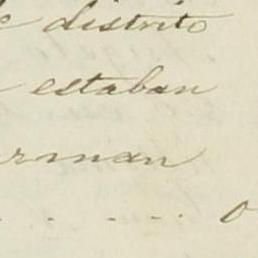 distrito
estaban
rman
. . . - - - . . o